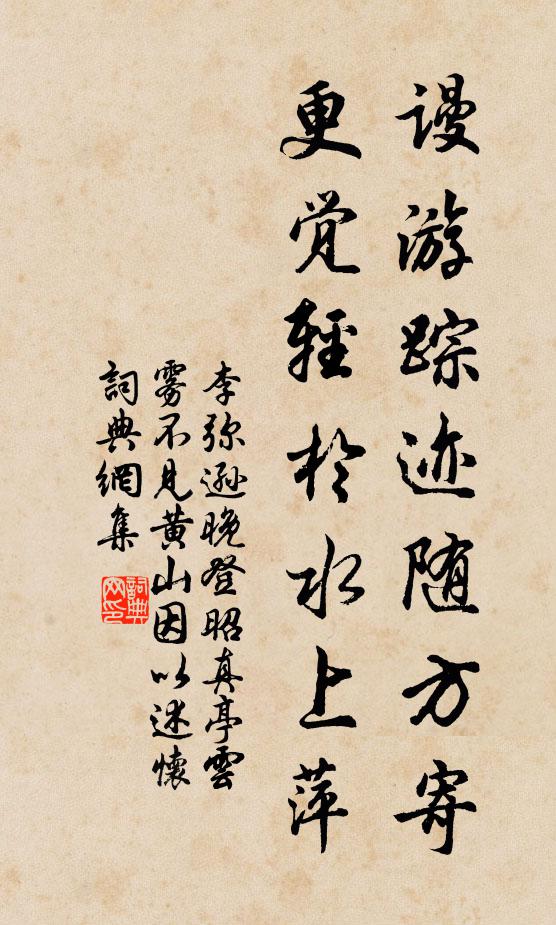 谩游踪迹随方寄
更觉輕於水上萍
李弥遜晚登昭真亭雲
雾不見黄山因以述懷
詞典網集
詞典